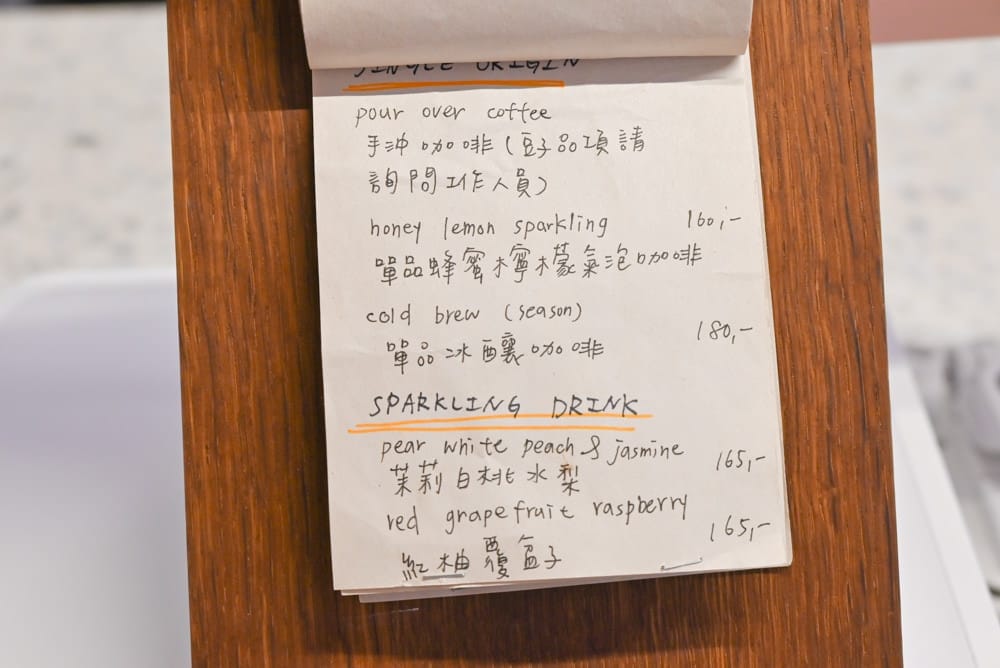 SINGLE ORIGIN
pour over coffee
手沖咖啡(豆子品項請
詢問工作人員)
honey lemon sparkling 160,-
單品蜂蜜檸檬氣泡咖啡
cold brew (season) 180,-
單品冰釀咖啡
SPARKLING DRINK
pear white peach & jasmine 165,-
茉莉白桃水梨
red grapefruit raspberry 165,-
紅柚覆盆子